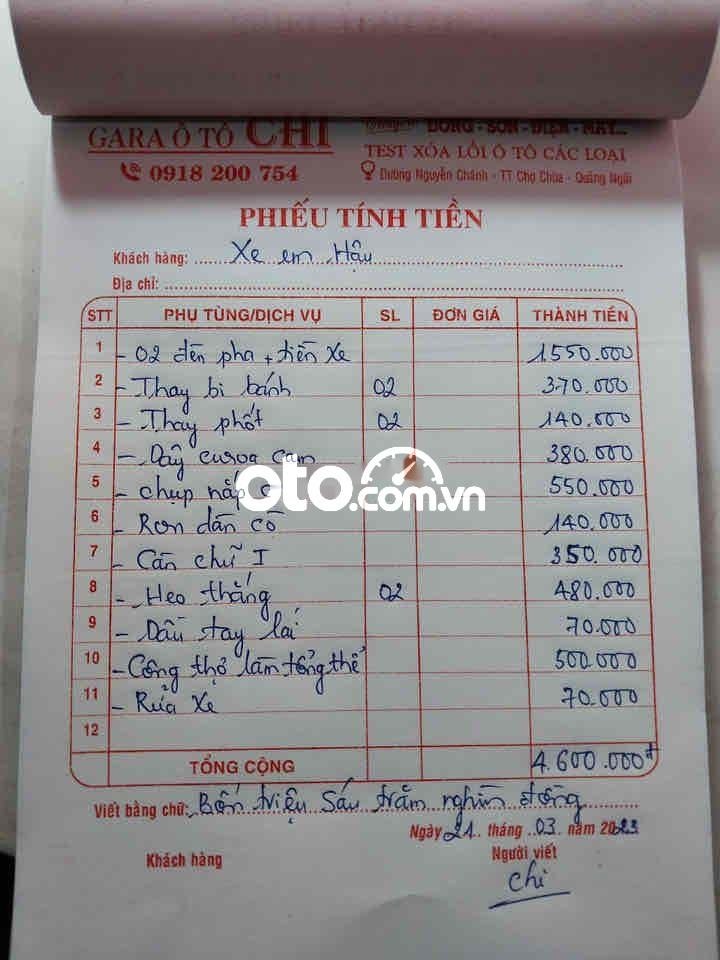 GARA Ô TÔ CHI
ĐỒNG - SƠN - ĐIỆN - MÁY...
TEST XÓA LỖI Ô TÔ CÁC LOẠI
0918 200 754
Đường Nguyễn Chánh - TT Chợ Chùa - Quảng Ngãi
PHIẾU TÍNH TIỀN
Khách hàng: Xe em Hậu
Địa chỉ:
STT PHỤ TÙNG/DỊCH VỤ SL ĐƠN GIÁ THÀNH TIỀN
1 - 02 đèn pha + tiền xe 1.550.000
2 - Thay bi bánh 02 370.000
3 - Thay phốt 02 140.000
4 - Dây curoa cam 380.000
5 - chụp nắp 550.000
oto.com.vn
6 - Ron dàn cò 140.000
7 - Cần chữ I 350.000
8 - Heo thắng 02 480.000
9 - Dầu tay lái 70.000
10 - Công thợ làm tổng thể 500.000
11 - Rửa xe 70.000
12
TỔNG CỘNG 4.600.000đ
Viết bằng chữ: Bốn triệu Sáu trăm nghìn đồng
Ngày 21 tháng 03 năm 2023
Khách hàng Người viết
Chi